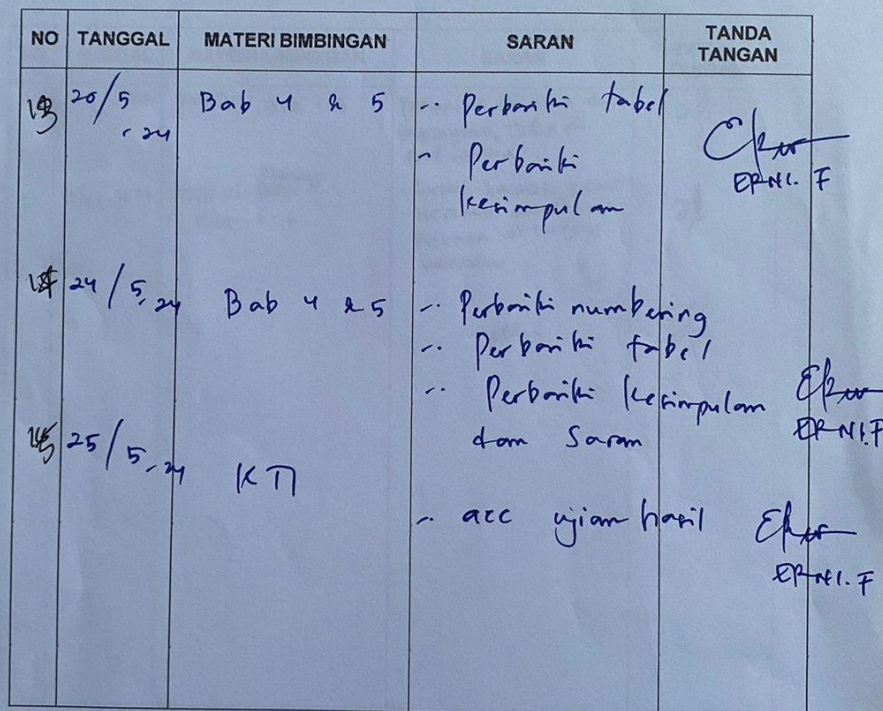 NO TANGGAL MATERI BIMBINGAN SARAN TANDA TANGAN
20/5-24 Bab 4 & 5 - Perbaiki tabel
- Perbaiki
kesimpulan
ERNI. F
24/5-24 Bab 4 & 5 - Perbaiki numbering
- Perbaiki tabel
- Perbaiki kesimpulan
dan Saran
ERNI.F
25/5-24 KTI
- acc ujian hasil
ERNI. F